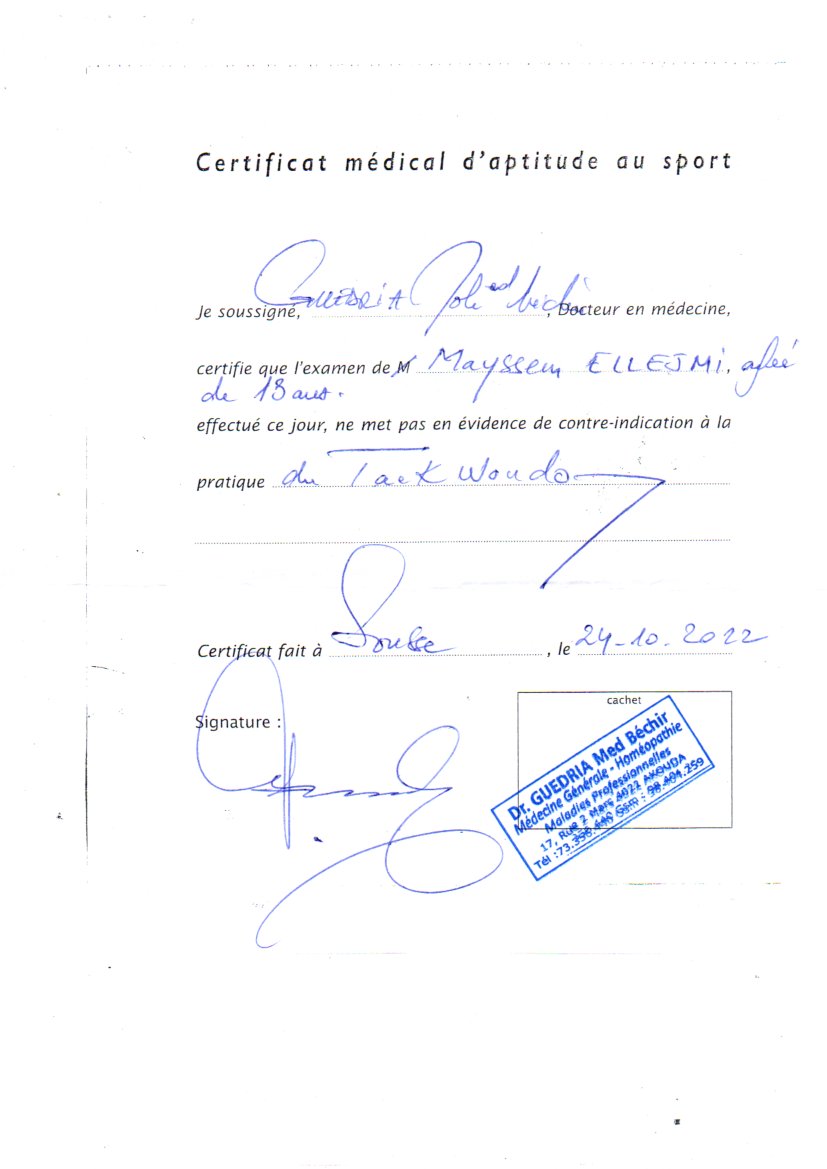 Certificat médical d'aptitude au sport
Je soussigné, GUEDRIA Moh ed Béchir, Docteur en médecine,
certifie que l'examen de M Mayssem ELLEJMi, agée
de 13 ans.
effectué ce jour, ne met pas en évidence de contre-indication à la
pratique du TaeK Wondo
Certificat fait à Sousse, le 24-10-2022
Signature :
cachet
Dr. GUEDRIA Med Béchir
Médecine Générale - Homéopathie
Maladies Professionnelles
17, Rue 2 Mars 4022 AKOUDA
Tél :73. Gsm : 98.404.259